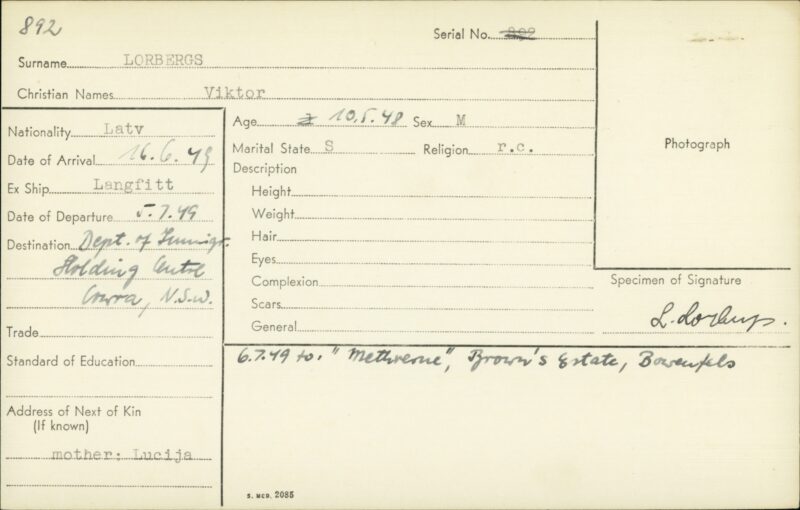 892
Serial No. 892
Surname LORBERGS
Christian Names Viktor
Nationality Latv
Date of Arrival 16.6.49
Ex Ship Langfitt
Date of Departure 5.7.49
Destination Dept. of Immigr.
Holding Centre
Cowra, N.S.W.
Trade
Standard of Education
Address of Next of Kin
(If known)
mother: Lucija
Age 10.5.48 Sex M
Marital State S Religion r.c.
Description
Height
Weight
Hair
Eyes
Complexion
Scars
General
Photograph
Specimen of Signature
L. Lorbergs.
6.7.49 to: "Methverne", Brown's Estate, Bowenfels
S. MCD. 2085